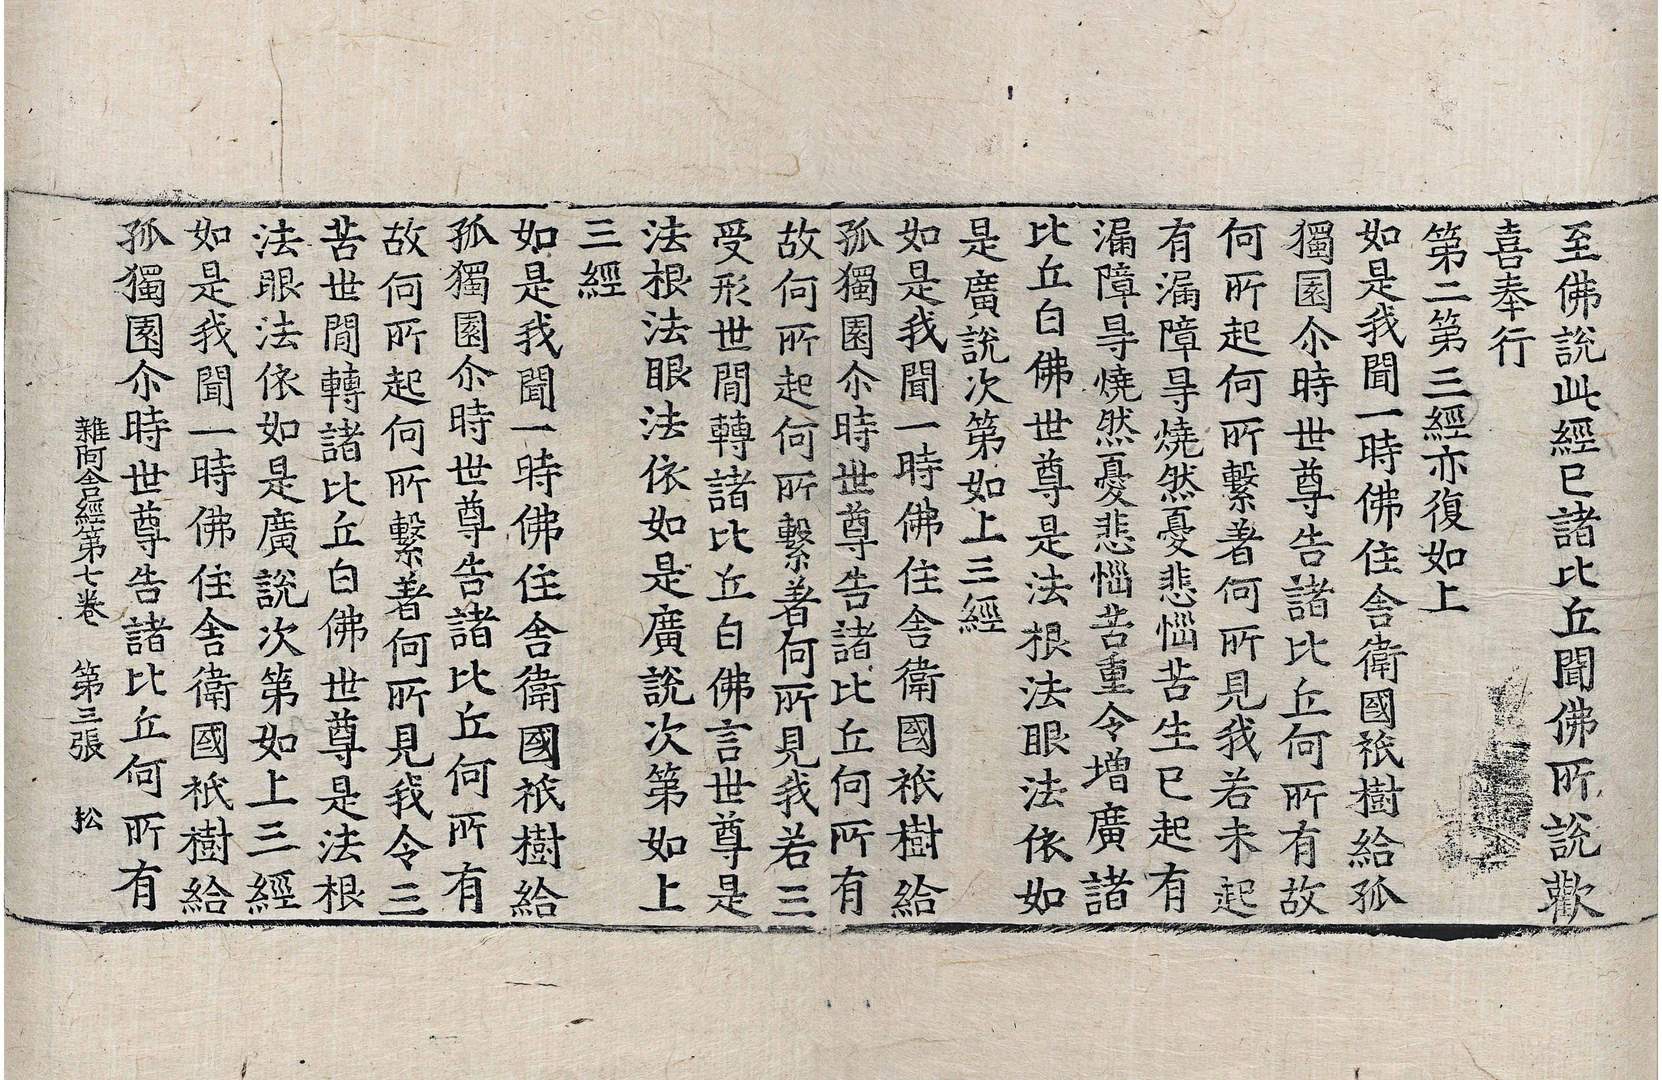 至佛說此經已諸比丘聞佛所說歡
喜奉行
第二第三經亦復如上
如是我聞一時佛住舍衛國祇樹給孤
獨園尒時世尊告諸比丘何所有故
何所起何所繫著何所見我若未起
有漏障㝵燒然憂悲惱苦生已起有
漏障㝵燒然憂悲惱苦重令增廣諸
比丘白佛世尊是法根法眼法依如
是廣說次第如上三經
如是我聞一時佛住舍衛國祇樹給
孤獨園尒時世尊告諸比丘何所有
故何所起何所繫著何所見我若三
受形世閒轉諸比丘白佛言世尊是
法根法眼法依如是廣說次第如上
三經
如是我聞一時佛住舍衛國祇樹給
孤獨園尒時世尊告諸比丘何所有
故何所起何所繫著何所見我令三
苦世閒轉諸比丘白佛世尊是法根
法眼法依如是廣說次第如上三經
如是我聞一時佛住舍衛國祇樹給
孤獨園尒時世尊告諸比丘何所有
雜阿含經第七卷 第三張 松